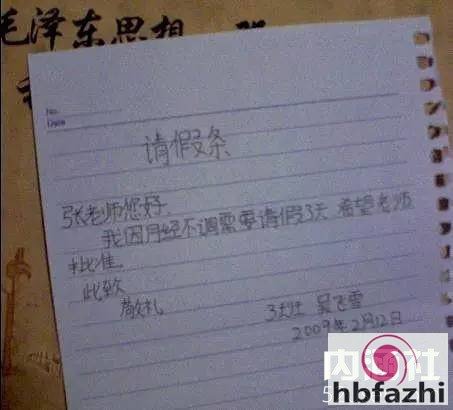 毛泽东思想
No.
Date
请假条
张老师您好.
我因月经不调需要请假3天 希望老师
批准.
此致
敬礼
3班 吴飞雪
2009年2月12日
hbfazhi